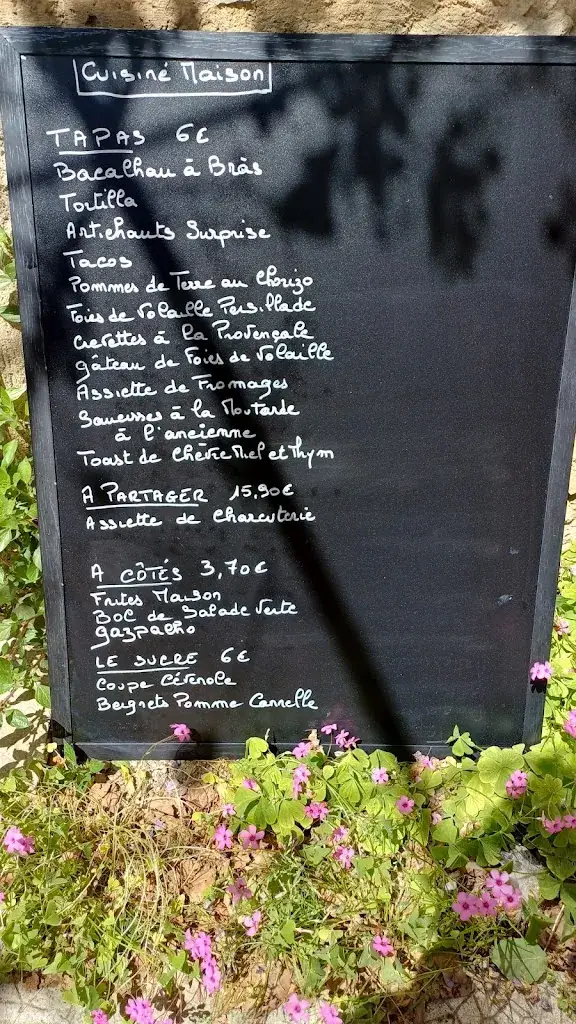 Cuisiné Maison
TAPAS 6€
Bacalhau à Bràs
Tortilla
Artichauts Surprise
Tacos
Pommes de Terre au Chorizo
Foies de Volaille Persillade
Crevettes à la Provençale
gâteau de Foies de Volaille
Assiette de Fromages
Saucisses à la Moutarde
à l'ancienne
Toast de Chèvre Miel et Thym
A PARTAGER 15,90€
Assiette de Charcuterie
A CÔTÉS 3,70€
Frites Maison
Bol de Salade Verte
gazpacho
LE SUCRE 6€
Coupe Cévenole
Beignets Pomme Cannelle